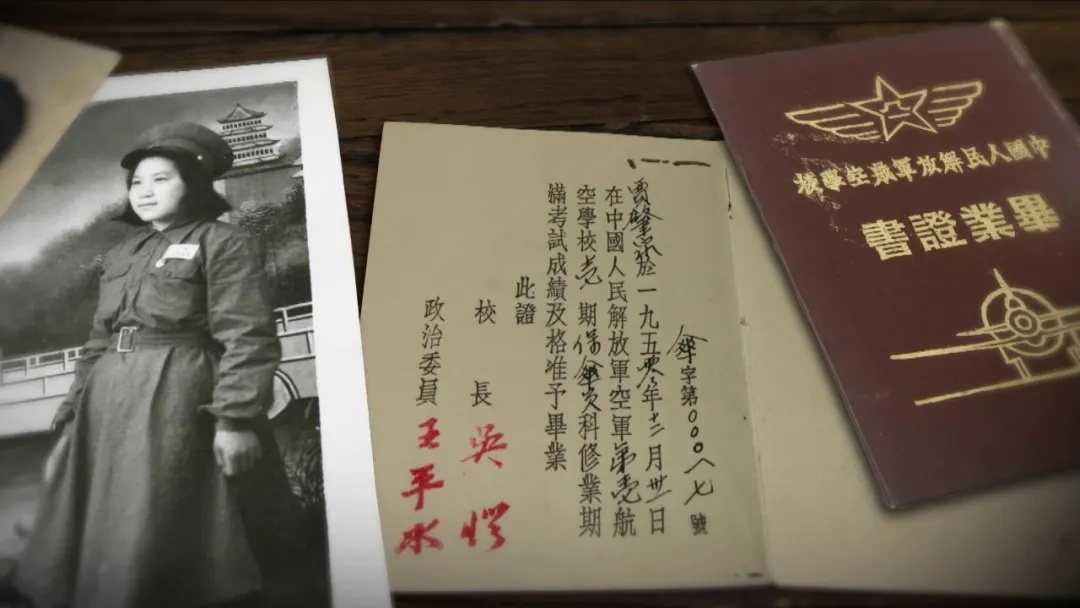 傘字第000八七號
賈肇於一九五零年十二月卅一日
在中國人民解放軍空軍第壱航
空學校壱期保傘員科修業期
滿考試成績及格准予畢業
此證
校長 吳愷
政治委員 王平水
中國人民解放軍航空學校
畢業證書